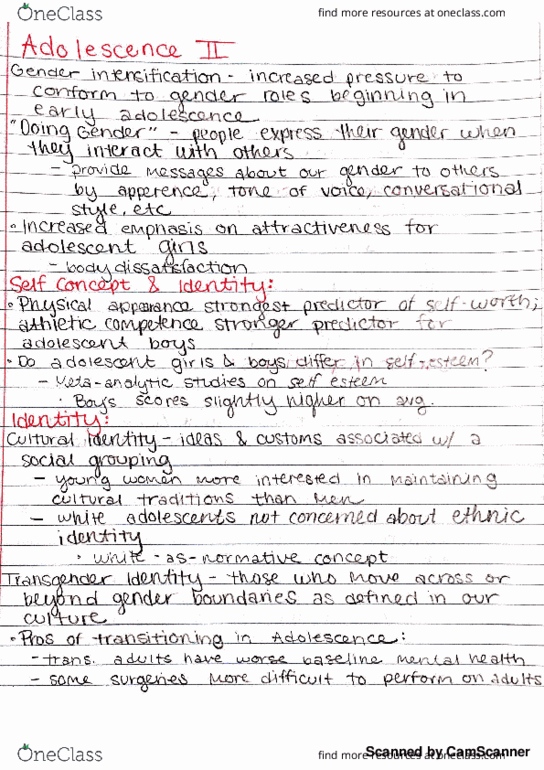 OneClass
find more resources at oneclass.com
Adolescence II
Gender intensification - increased pressure to
conform to gender roles beginning in
early adolescence
"Doing Gender" - people express their gender when
they interact with others
- provide messages about our gender to others
by apperence, tone of voice, conversational
style, etc
• Increased emphasis on attractiveness for
adolescent girls
- body dissatisfaction
Self Concept & Identity:
• Physical appearance strongest predictor of self-worth;
athletic competence stronger predictor for
adolescent boys
• Do adolescent girls & boys differ in self-esteem?
- Meta-analytic studies on self esteem
• Boys scores slightly higher on avg.
Identity:
Cultural identity - ideas & customs associated w/ a
social grouping
- young women more interested in maintaining
cultural traditions than men
- white adolescents not concerned about ethnic
identity
• white-as-normative concept
Transgender Identity - those who move across or
beyond gender boundaries as defined in our
culture
• Pros of transitioning in Adolescence:
- trans. adults have worse baseline mental health
- some surgeries more difficult to perform on adults
OneClass
find more resources at oneclass.com
Scanned by CamScanner